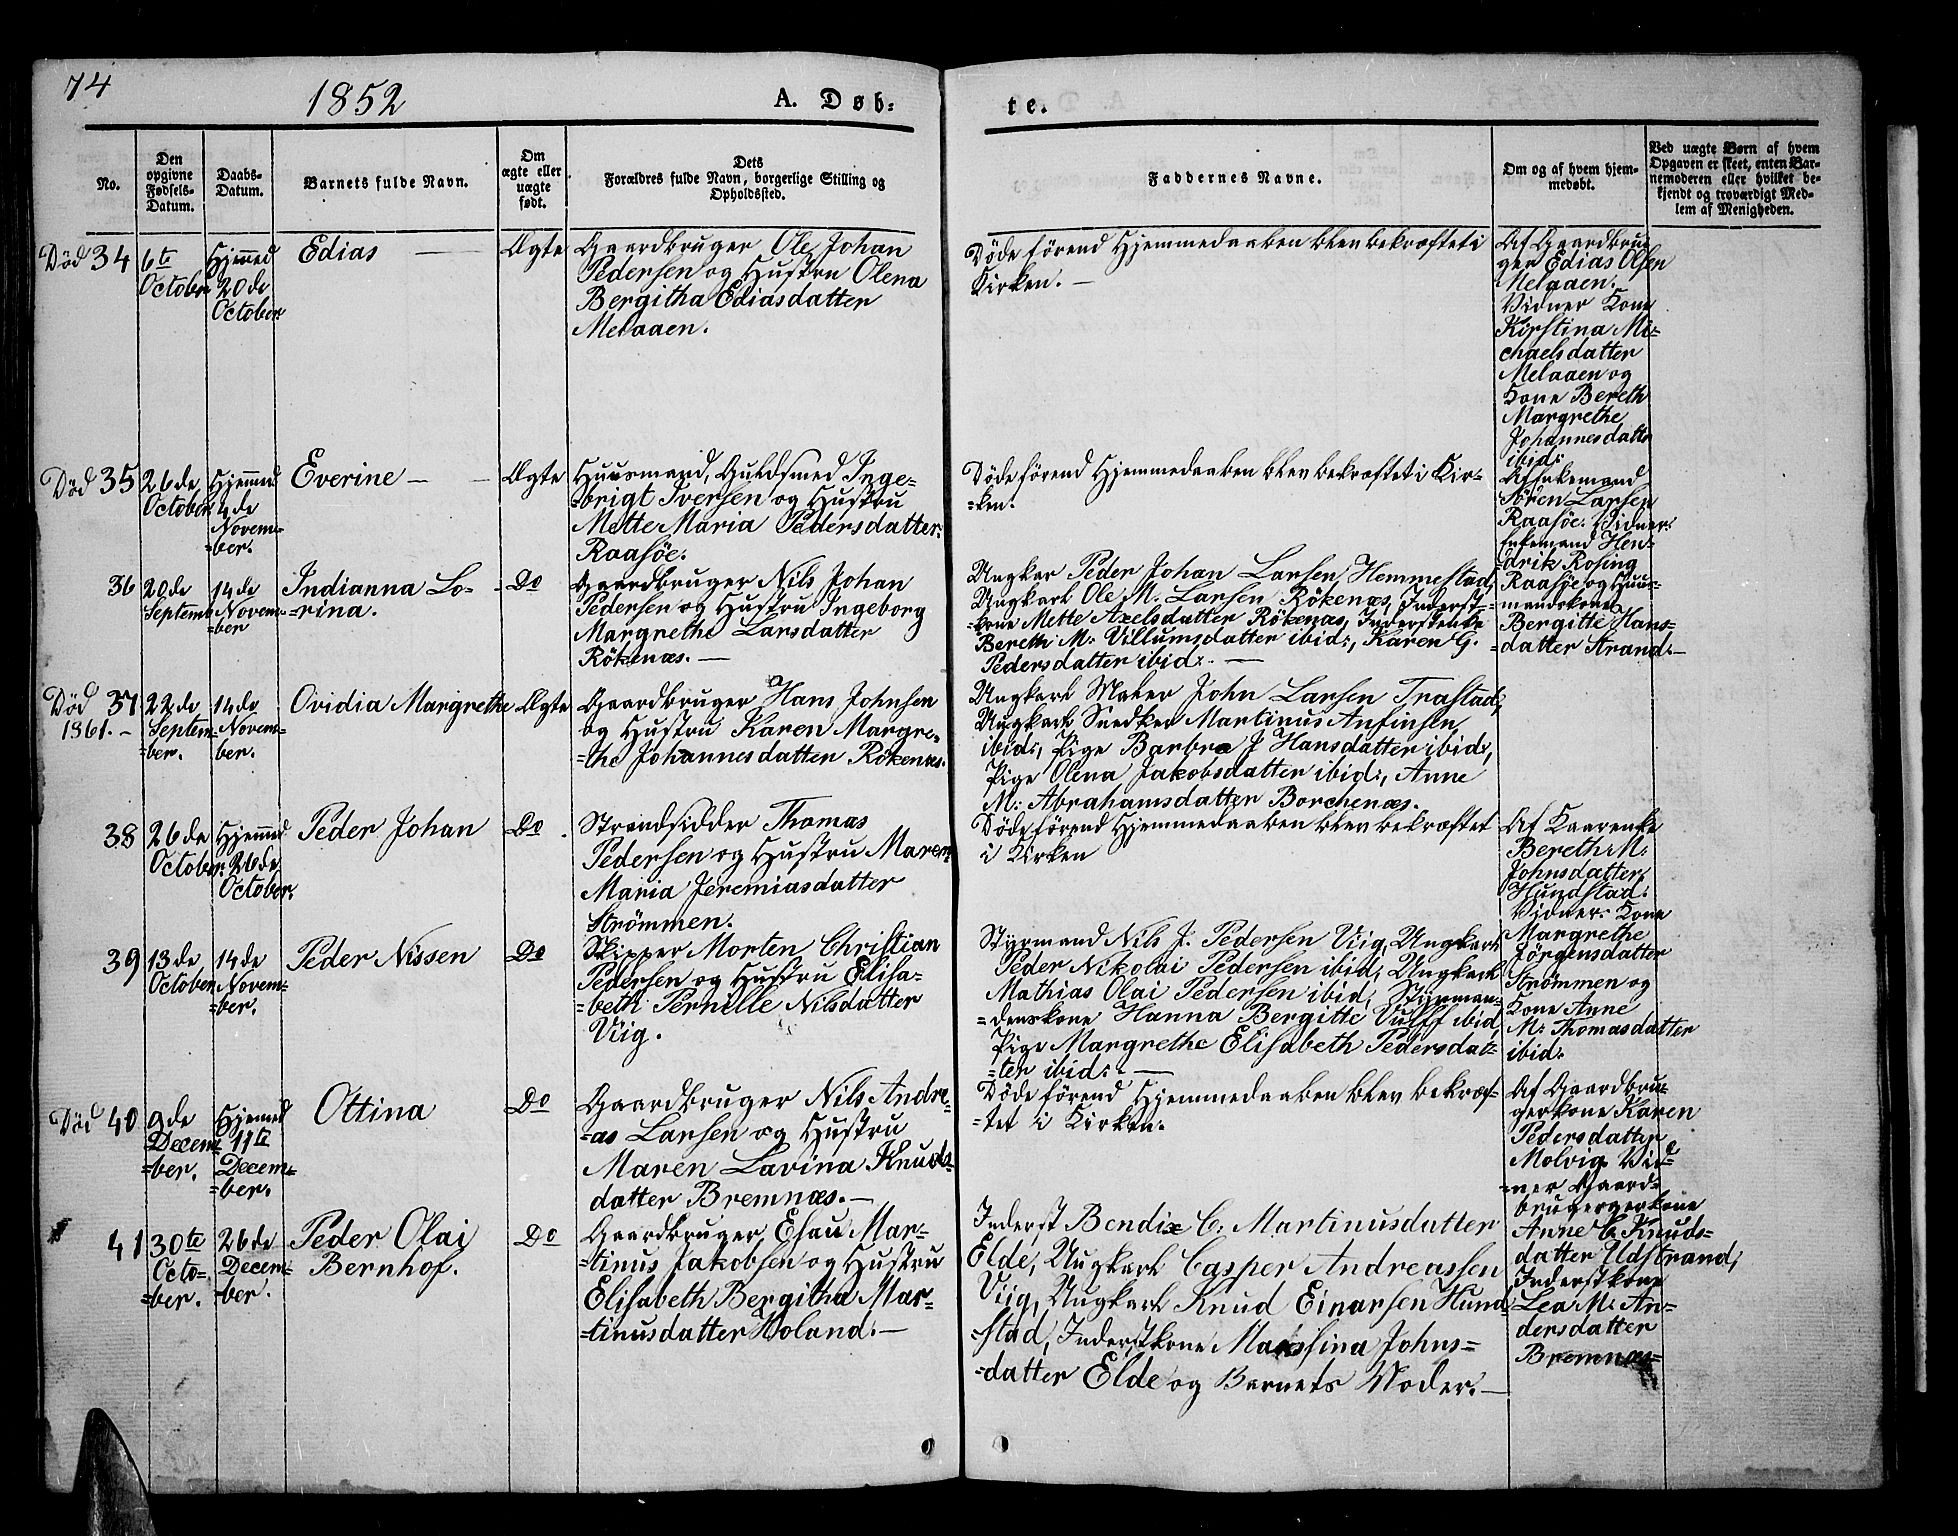 74
1852
A. Døb-
te.
No.
Den
opgivne
Fødsels-
Datum.
Daabs-
Datum.
Barnets fulde Navn.
Om
ægte eller
uægte
født.
Dets
Forældres fulde Navn, borgerlige Stilling og
Opholdssted.
Faddernes Navne.
Om og af hvem hjem-
medøbt.
Ved uægte Børn af hvem
Opgaven er skeet, enten Bar-
nemoderen eller hvilket be-
kjendt og troværdigt Med-
lem af Menigheden.
Død 34
6te
October
Hjemmed
20de
October
Edias —
Ægte
Gaardbruger Ole Johan
Pedersen og Hustru Olena
Bergitha Ediasdatter
Melaaen.
Døde förend Hjemmedaaben blev bekræftet i
Kirken. —
Af Gaardbru-
ger Edias Olsen
Melaaen.
Vidner Kone
Kirstina Mi-
chaelsdatter
Melaaen og
Kone Bereth
Margrethe
Johannesdattr
ibid:
Død 35
26de
October
Hjemmed
4de
Novem-
=ber.
Everine —
Ægte
Huusmand, Guldsmed Inge-
=brigt Iversen og Hustru
Mette Maria Pedersdatter.
Raasöe.
Döde förend Hjemmedaaben blev bekræftet i Kir-
=ken.
Af Enkemand
Sören Larsen
Raasöe. Vidner:
Enkemand Hen-
drik Rosing
Raasöe og Huus-
=mandskone
Bergitte Hans-
=datter Strand.—
36
20de
Septemb
14de
Novem-
=ber
Indianna Lo-
=rina.
Do
Gaardbruger Nils Johan
Pedersen og Hustru Ingeborg
Margrethe Larsdatter
Rökenæs. —
Ungkar Peder Johan Larsen, Hemmestad,
Ungkarl Ole M. Larsen Rökenæs, Inderst-
=kone Mette Axelsdatter Rökenæs, Inderstenke
Bereth M: Villumsdatter ibid:, Karen G.
Pedersdatter ibid:. —
Død 37
1861. -
22de
Septem-
=ber.
14de
Novem-
ber.
Ovidia Margrethe
Ægte
Gaardbruger Hans Johnsen
og Hustru Karen Margre-
=the Johannesdatter Rökenæs.
Ungkarl Maler John Larsen Trastad,
Ungkarl Snedker Martinus Anfinsen
ibid:, Pige Barbra J Hansdatter ibid:,
Pige Olena Jakobsdatter ibid:, Anne
M: Abrahamsdatter Borchenæs.
38
26de
October
Hjemmed
26de
October.
Peder Johan
Do
Strandsidder Thomas
Pedersen og Hustru Maren
Maria Jeremiasdatter
Strömmen.
Döde förend Hjemmedaaben blev bekræftet
i Kirken
Af Kaarenke
Bereth M:
Johnsdatter,
Hundstad.
Vidner: Kone
Margrethe
Jörgensdatter
Strömmen og
Kone Anne
M: Thomasdatter
ibid.
39
13de
October
14de
Novem-
=ber.
Peder Nissen
Do
Skipper Morten Christian
Pedersen og Hustru Elisa-
=beth Pernille Nilsdatter
Viig.
Styrmand Nils J. Pedersen Viig, Ungkarl
Peder Nikolai Pedersen ibid, Ungkarl
Mathias Olai Pedersen ibid, Styrman-
=denskone Hanna Bergitte Vulff ibid,
Pige Margrethe Elisabeth Pedersdat-
=ter ibid:. —
Død 40
9de
Decem-
=ber.
Hjemmed
11te
Decem-
=ber.
Ottina
Do
Gaardbruger Nils Andre-
=as Larsen og Hustru
Maren Lavina Knuds-
datter Bremnæs.—
Døde förend Hjemmedaaben blev bekræf-
=tet i Kirken.
Af Gaardbru-
gerkone Karen
Pedersdatter
Molvig. Vid-
=ner Gaard-
brugergerkone
Anne C. Knuds-
datter Udstrand,
Inderstkone
Lea M. An-
dersdatter
Bremnæs-
41
30te
Octo-
=ber.
26de
Decem-
=ber.
Peder Olai
Bernhof.
Do
Gaardbruger, Esau Mar-
=tinus Jakobsen og Hustru
Elisabeth Bergitha Mar-
=tinusdatter Holand. —
Inderst Bendix C. Martinusdatter
Elde, Ungkarl Casper Andreassen
Viig, Ungkarl Knud Einarsen Hund
=stad, Inderstkone Massina Johns-
=datter Elde og Barnets Moder. —